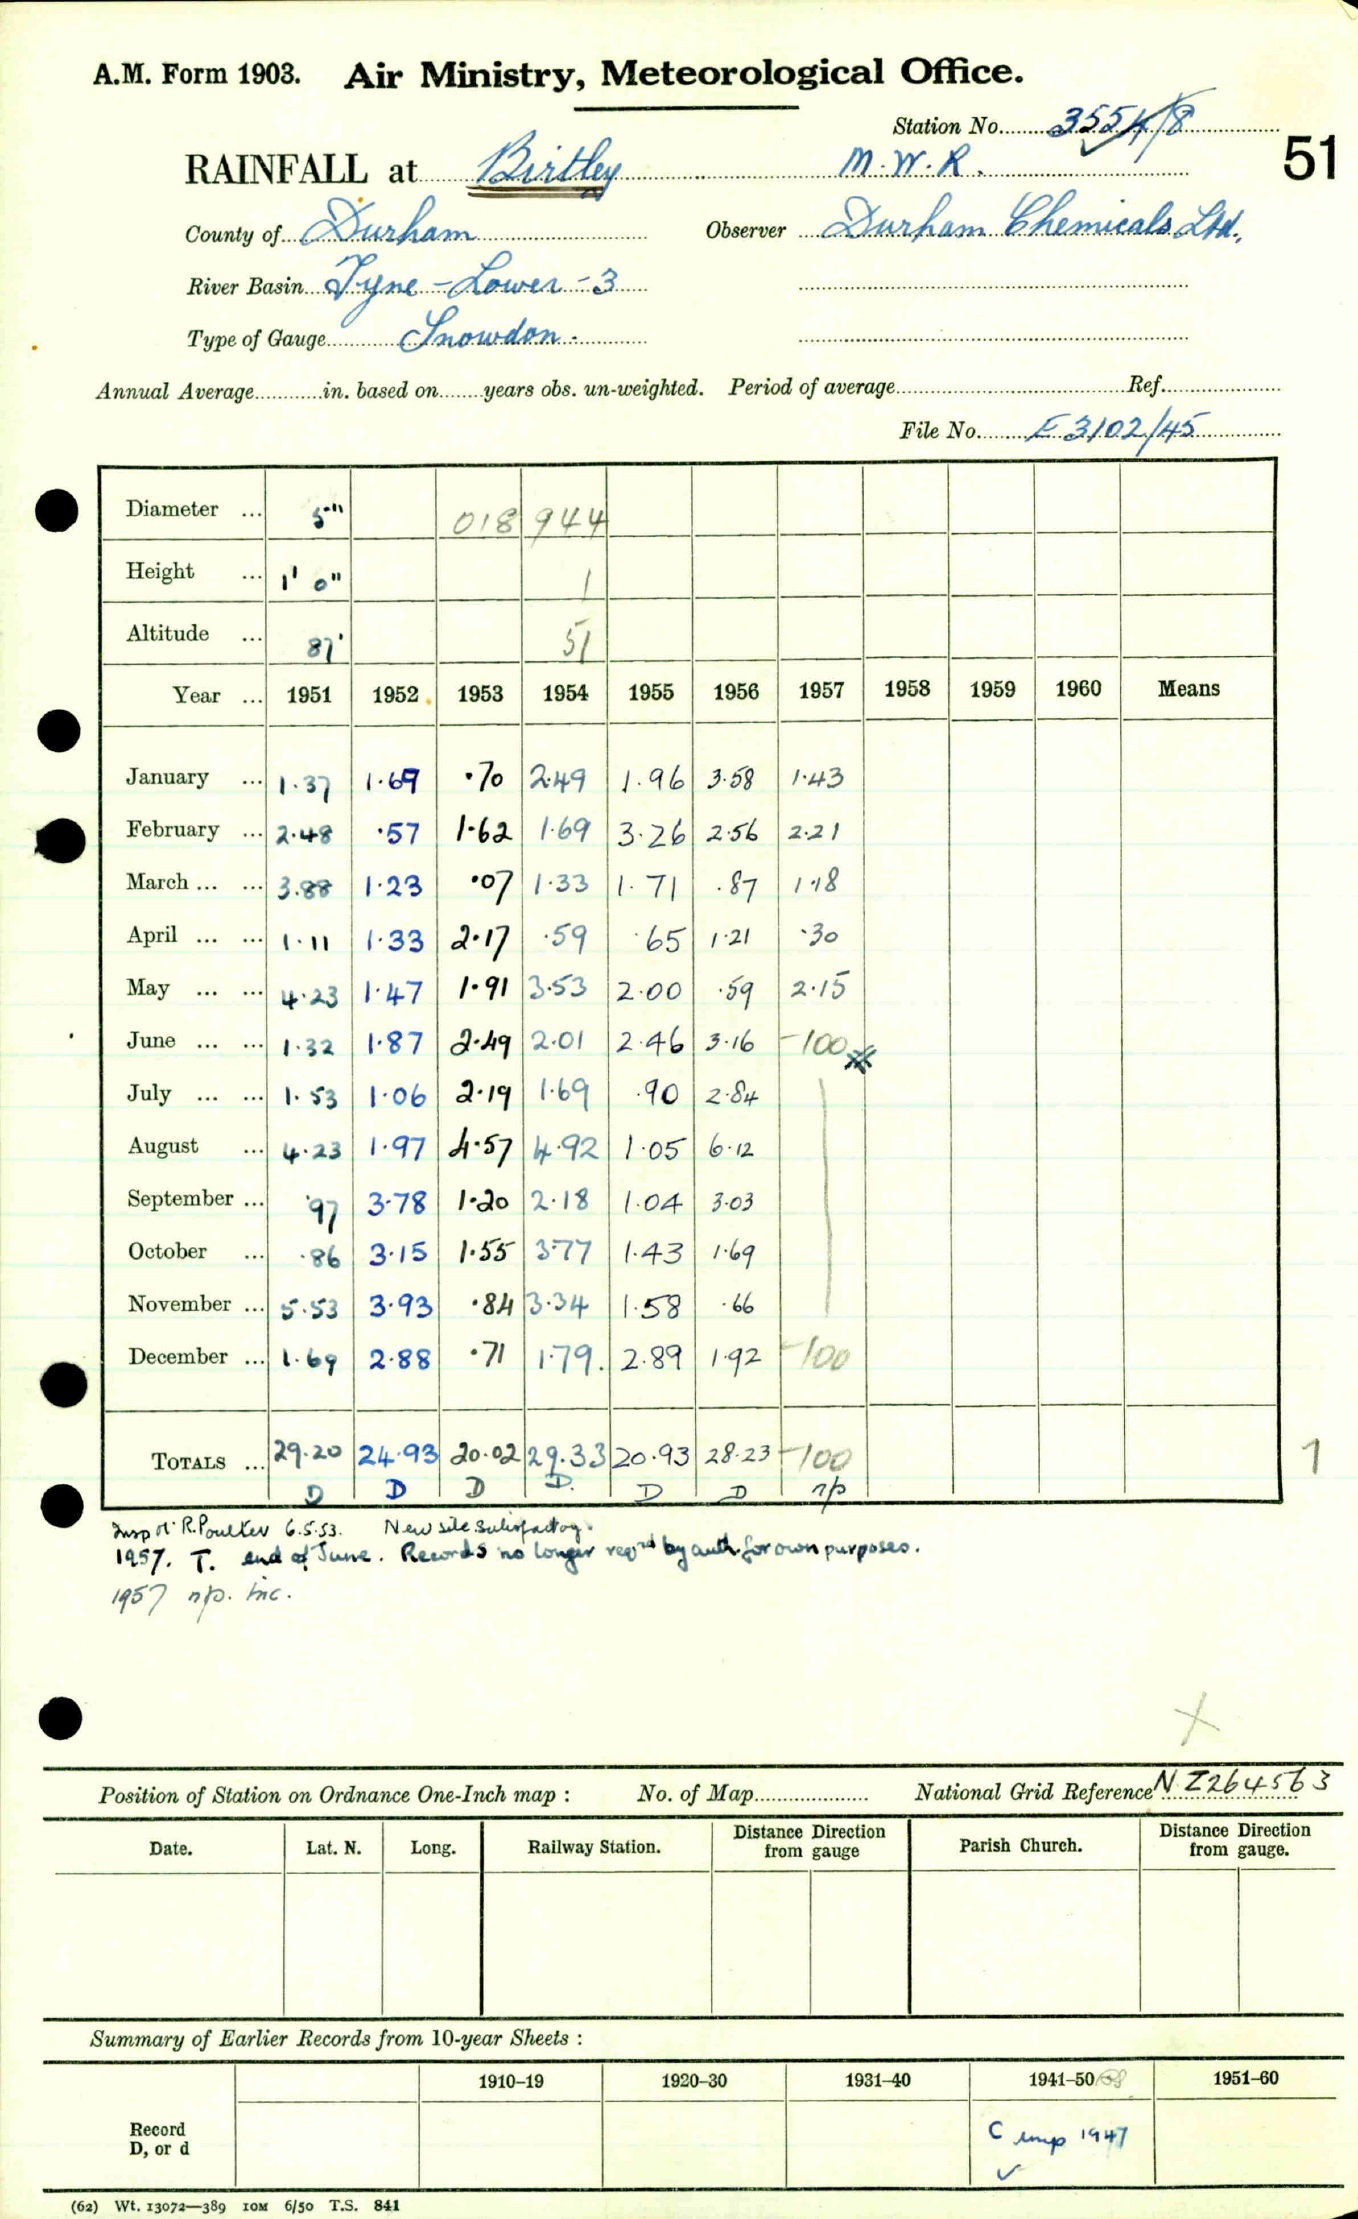 A.M. Form 1903. Air Ministry, Meteorological Office.
Station No. 3554/8
51
RAINFALL at Birtley M.W.R.
County of Durham Observer Durham Chemicals Ltd.
River Basin Tyne - Lower - 3
Type of Gauge Snowdon.
Annual Average in. based on years obs. un-weighted. Period of average Ref.
File No. E 3102/45
Diameter ... 5" 018 944
Height ... 1' 0" 1
Altitude ... 87' 51
Year ... 1951 1952 1953 1954 1955 1956 1957 1958 1959 1960 Means
January ... 1.37 1.69 .70 2.49 1.96 3.58 1.43
February ... 2.48 .57 1.62 1.69 3.26 2.56 2.21
March ... ... 3.88 1.23 .07 1.33 1.71 .87 1.18
April ... ... 1.11 1.33 2.17 .59 .65 1.21 .30
May ... ... 4.23 1.47 1.91 3.53 2.00 .59 2.15
June ... ... 1.32 1.87 2.49 2.01 2.46 3.16 -100
July ... ... 1.53 1.06 2.19 1.69 .90 2.84
August ... 4.23 1.97 4.57 4.92 1.05 6.12
September ... .97 3.78 1.20 2.18 1.04 3.03
October ... .86 3.15 1.55 3.77 1.43 1.69
November ... 5.53 3.93 .84 3.34 1.58 .66
December ... 1.69 2.88 .71 1.79. 2.89 1.92 -100
TOTALS ... 29.20 24.93 20.02 29.33 20.93 28.23 -100 1
D D D D. D D n/p
Insp Mr R. Poulter 6.5.53. New site satisfactory.
1957. T. end of June. Records no longer reqrd by auth. for own purposes.
1957 n/p. inc.
Position of Station on Ordnance One-Inch map : No. of Map National Grid Reference NZ264563
Date. Lat. N. Long. Railway Station. Distance from gauge Direction Parish Church. Distance from gauge. Direction
Summary of Earlier Records from 10-year Sheets :
1910–19 1920–30 1931–40 1941–50 1951–60
Record D, or d C imp 1947
(62) Wt. 13072—389 10M 6/50 T.S. 841